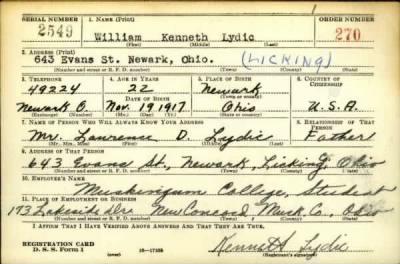 SERIAL NUMBER 1. NAME (Print) ORDER NUMBER
2549 William Kenneth Lydic 270
(First) (Middle) (Last)
2. ADDRESS (Print)
643 Evans St. Newark, Ohio. (LICKING)
(Number and street or R. F. D. number) (Town) (County) (State)
3. TELEPHONE 4. AGE IN YEARS 5. PLACE OF BIRTH 6. COUNTRY OF CITIZENSHIP
49224 22 Newark
DATE OF BIRTH (Town or county)
Newark O. Nov. 19 1917 Ohio U.S.A.
(Exchange) (Number) (Mo.) (Day) (Yr.) (State or country)
7. NAME OF PERSON WHO WILL ALWAYS KNOW YOUR ADDRESS 8. RELATIONSHIP OF THAT PERSON
Mr. Lawrence D. Lydic Father
(Mr., Mrs., Miss) (First) (Middle) (Last)
9. ADDRESS OF THAT PERSON
643 Evans St., Newark, Licking, Ohio
(Number and street or R. F. D. number) (Town) (County) (State)
10. EMPLOYER'S NAME
Muskingum College, Student
11. PLACE OF EMPLOYMENT OR BUSINESS
173 Lakeside Dr. New Concord Musk. Co., Ohio
(Number and street or R. F. D. number) (Town) (County) (State)
I AFFIRM THAT I HAVE VERIFIED ABOVE ANSWERS AND THAT THEY ARE TRUE.
REGISTRATION CARD
D. S. S. Form 1 Kenneth Lydic
(Registrant's signature)